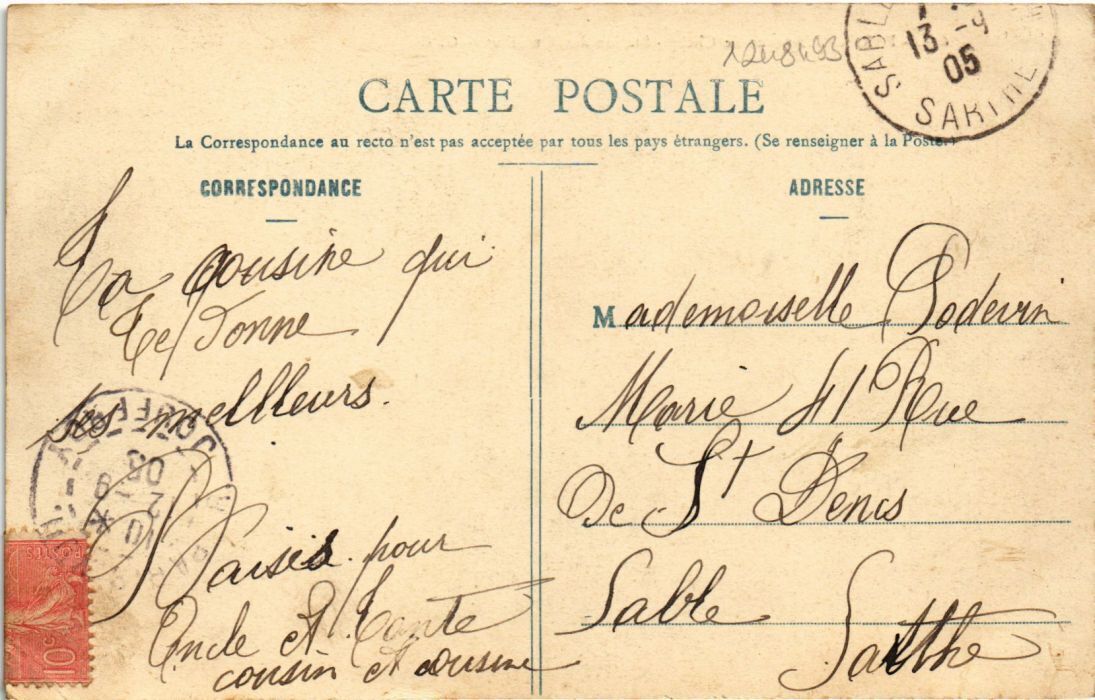 CARTE POSTALE
La Correspondance au recto n'est pas acceptée par tous les pays étrangers. (Se renseigner à la Poste.)
CORRESPONDANCE
Ta cousine qui
te donne
ses meilleurs
Baisés pour
Oncle et Tante
cousin et cousine
ADRESSE
Mademoiselle Podevin
Marie 41 Rue
De St Denis
Sable Sarthe
13 -9
05
SARTHE
2 -9
05
POSTES
10c